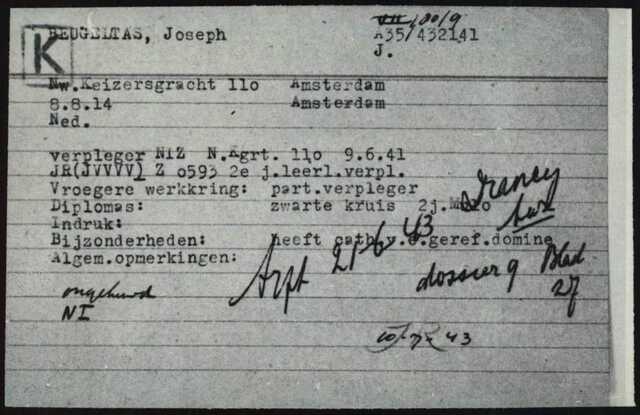 K
BEUGELTAS, Joseph
VII 100/9
A35/432141
J.
Nw.Keizersgracht 110 Amsterdam
8.8.14 Amsterdam
Ned.
verpleger NIZ N.Kgrt. 110 9.6.41
JR(JVVVV) Z 0593 2e j.leerl.verpl.
Vroegere werkkring: part.verpleger
Diplomas: zwarte kruis 2j.
Indruk:
Bijzonderheden: heeft cath.v.e.geref.domine
Algem.opmerkingen:
21-6-43
dossier 9 Blad
27
ongehuwd
NI
43